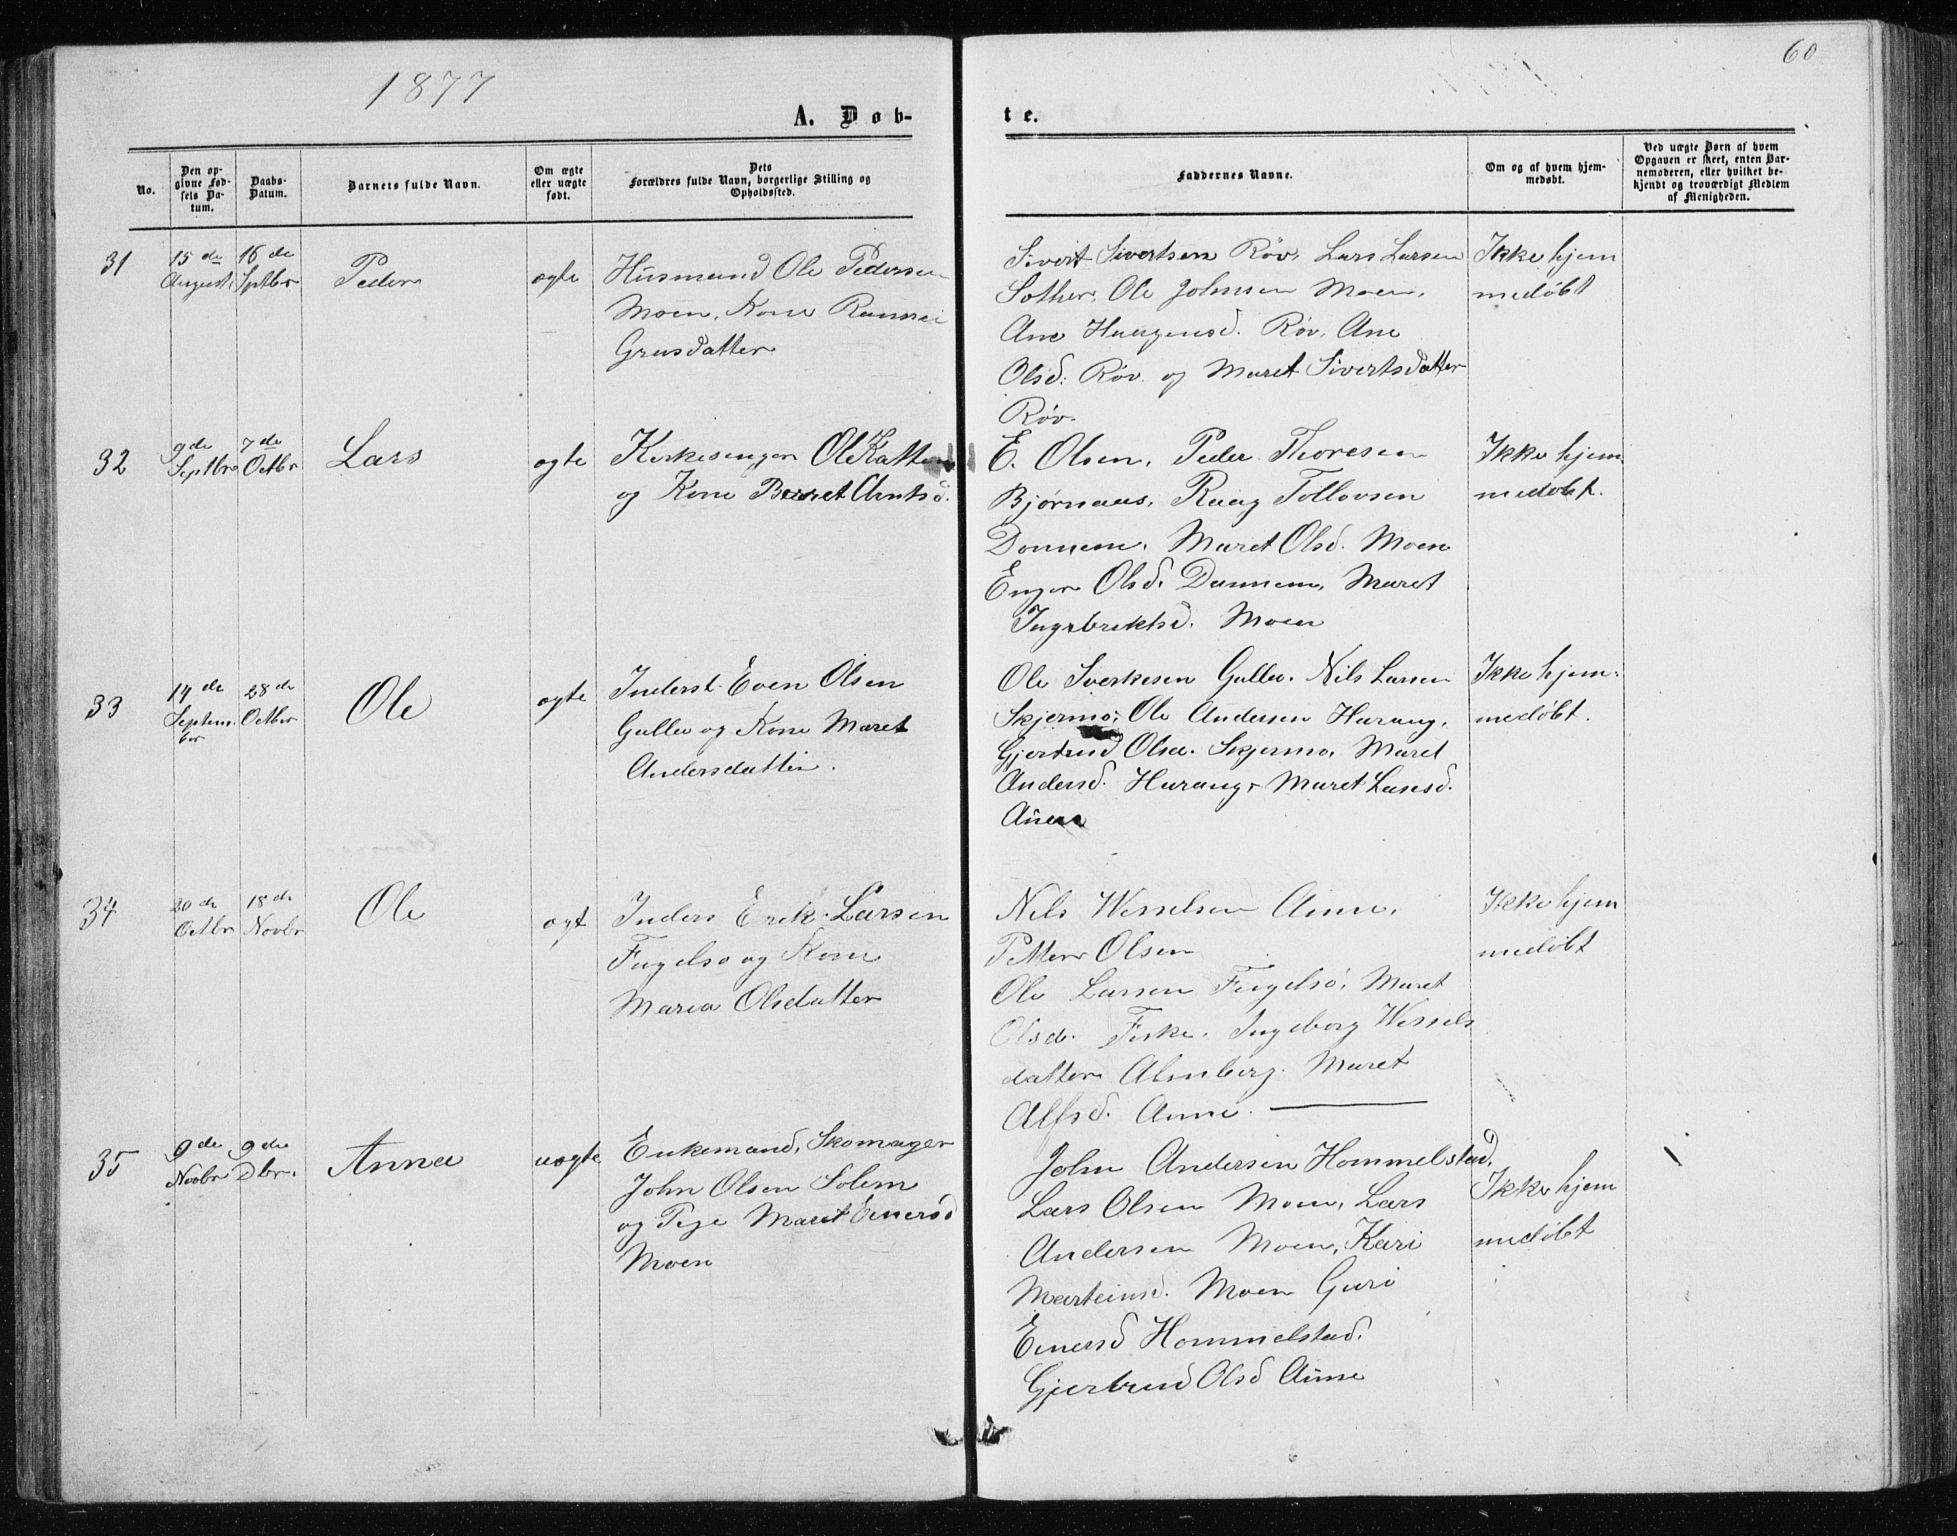 1877
60
A. Døb-
te.
No.
Den op-
givne Fød-
sels Da-
tum.
Daabs-
Datum.
Barnets fulde Navn.
Om ægte
eller uægte
født.
Dets
Forældres fulde Navn, borgerlige Stilling og
Opholdssted.
Faddernes Navne.
Om og af hvem hjem-
medøbt.
Ved uægte Børn af hvem
Opgaven er skeet, enten Bar-
nemoderen, eller hvilket be-
kjendt og troværdigt Medlem
af Menigheden.
31
15de
August
16de
Sptbr
Peder
ægte
Husmand Ole Pedersen
Moen, Kone Rannei
Grusdatter
Sivert Sivertsen Røv, Lars Larsen
Sother, Ole Johnsen Moen,
Ane Haagensd. Røv, Ane
Olsd: Røv og Maret Sivertsdatter
Røv.
Ikke hjem
medøbt
32
9de
Septbr
7de
Octbr
Lars
ægte
Kirkesanger Ole Kattem
og Kone Beret Arntsd.
E. Olsen, Peder Thoresen
Bjørnaas, Raag Tollovsen
Donnem, Maret Olsd. Moen
Enger Olsd. Dannem, Maret
Ingebriktsd. Moen
Ikke hjem
medøbt.
33
14de
Septem
ber
28de
Octbr
Ole
ægte
Inderst Even Olsen
Gulla og Kone Maret
Andersdatter.
Ole Sverkesen Gulla. Nils Larsen
Skjermo, Ole Andersen Harang,
Gjertrud Olsd. Skjermo, Maret
Andersd. Harang, Maret Larsd.
Aune
Ikke hjem-
medøbt.
34
20de
Octbr
18de
Novbr
Ole
ægt
Inders Erik Larsen
Fugelsø og Kone
Maria Olsdatter
Nils Wesselsen Aune,
Petter Olsen
Ole Larsen Fugelsø, Maret
Olsd. Fiske. Ingeborg Wessels
datter Almberg. Maret
Alfsd. Aune.
Ikke hjem
medøbt
35
9de
Novbr
9de
Dbr.
Anna
uægte
Enkemand, Skomager
John Olsen Solem
og Pige Maret Einersd
Moen
John Andersen Hommelstad,
Lars Olsen Moen, Lars
Andersen Moen, Kari
Marteinsd. Moen Guri
Einersd Hommelstad.
Gjertrud Olsd Aune
Ikke hjem
medøbt